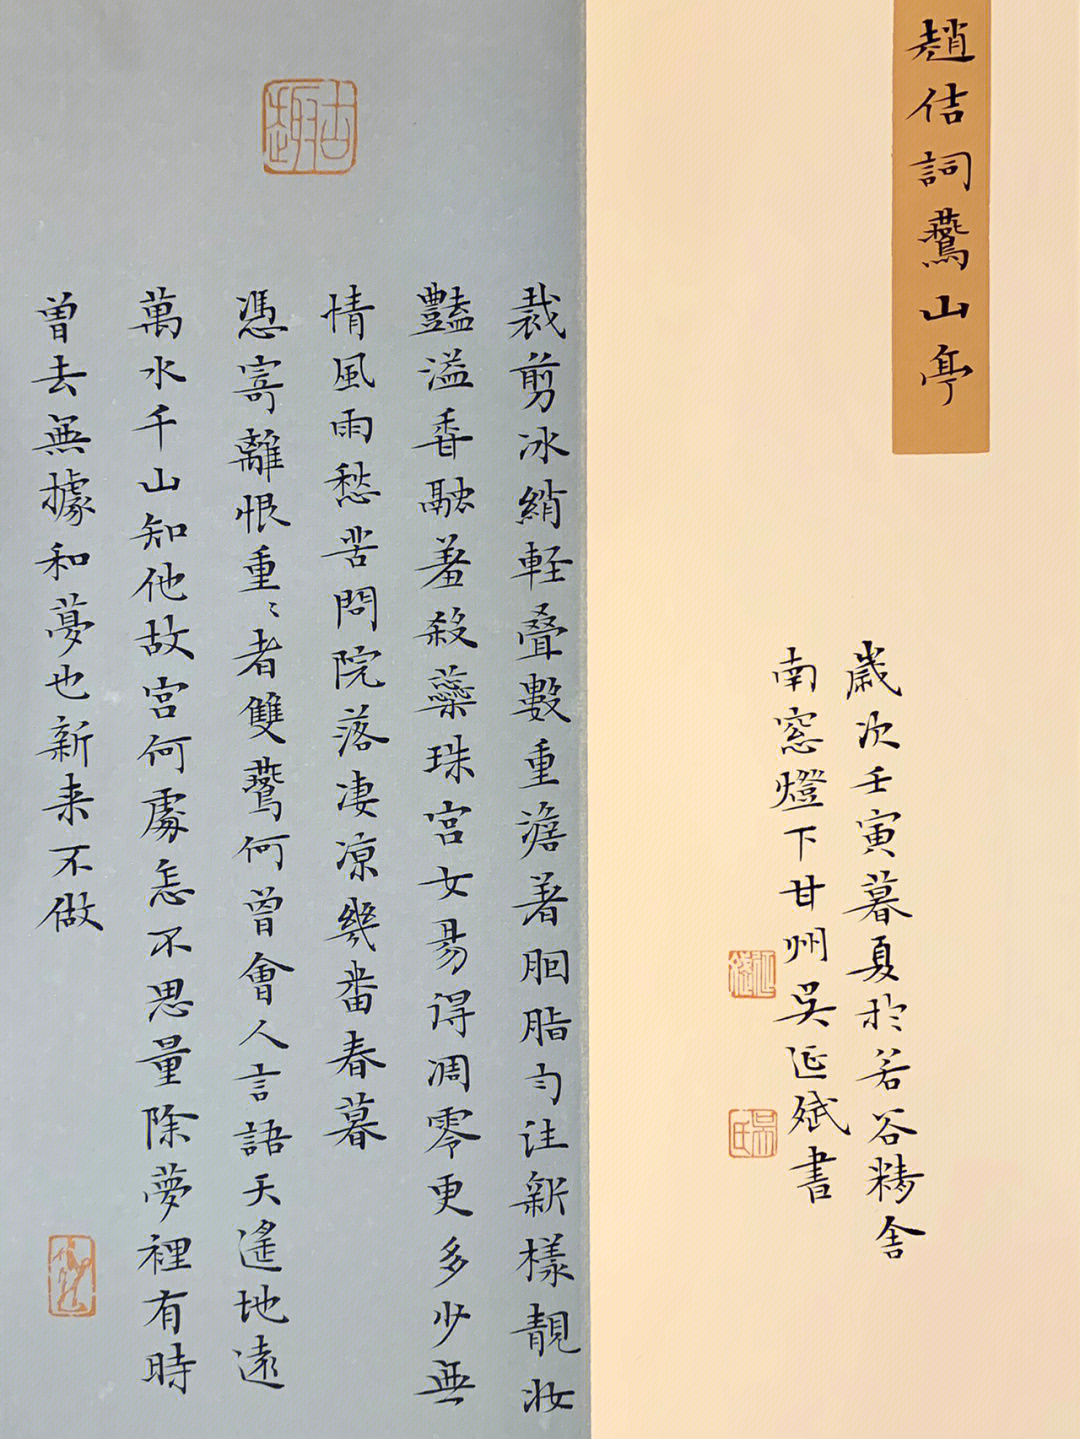 趙佶詞鷰山亭
歲次壬寅暮夏於若谷精舍
南窓燈下甘州吳延斌書
裁剪冰綃軽叠數重澹著胭脂勻注新樣靚妝
豔溢香融羞殺蘂珠宮女易得凋零更多少無
情風雨愁苦問院落凄凉幾番春暮
憑寄離恨重〻者雙鷰何曾會人言語天遙地遠
萬水千山知他故宮何處怎不思量除夢裡有時
曾去無據和夢也新来不做
古趣
吳氏